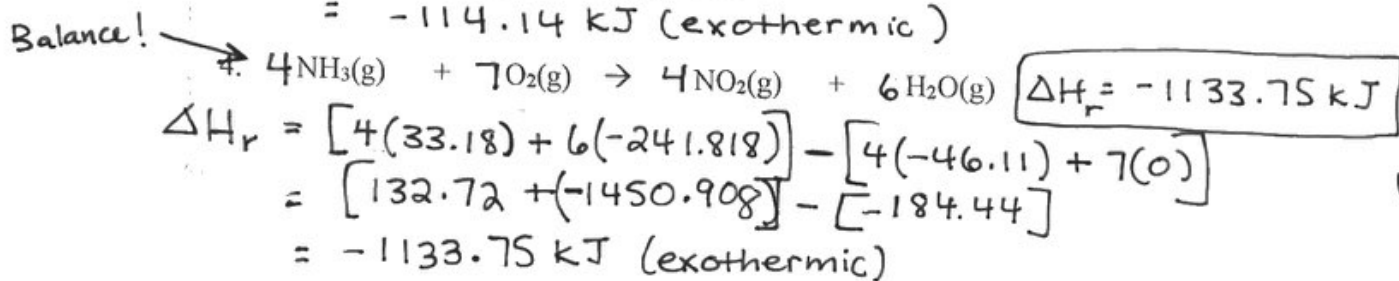 = -114.14 kJ (exothermic)
Balance!
4. 4NH₃(g) + 7O₂(g) → 4NO₂(g) + 6H₂O(g) ΔHᵣ= -1133.75 kJ
ΔHᵣ = [4(33.18) + 6(-241.818)] - [4(-46.11) + 7(0)]
= [132.72 +(-1450.908)] - [-184.44]
= -1133.75 kJ (exothermic)